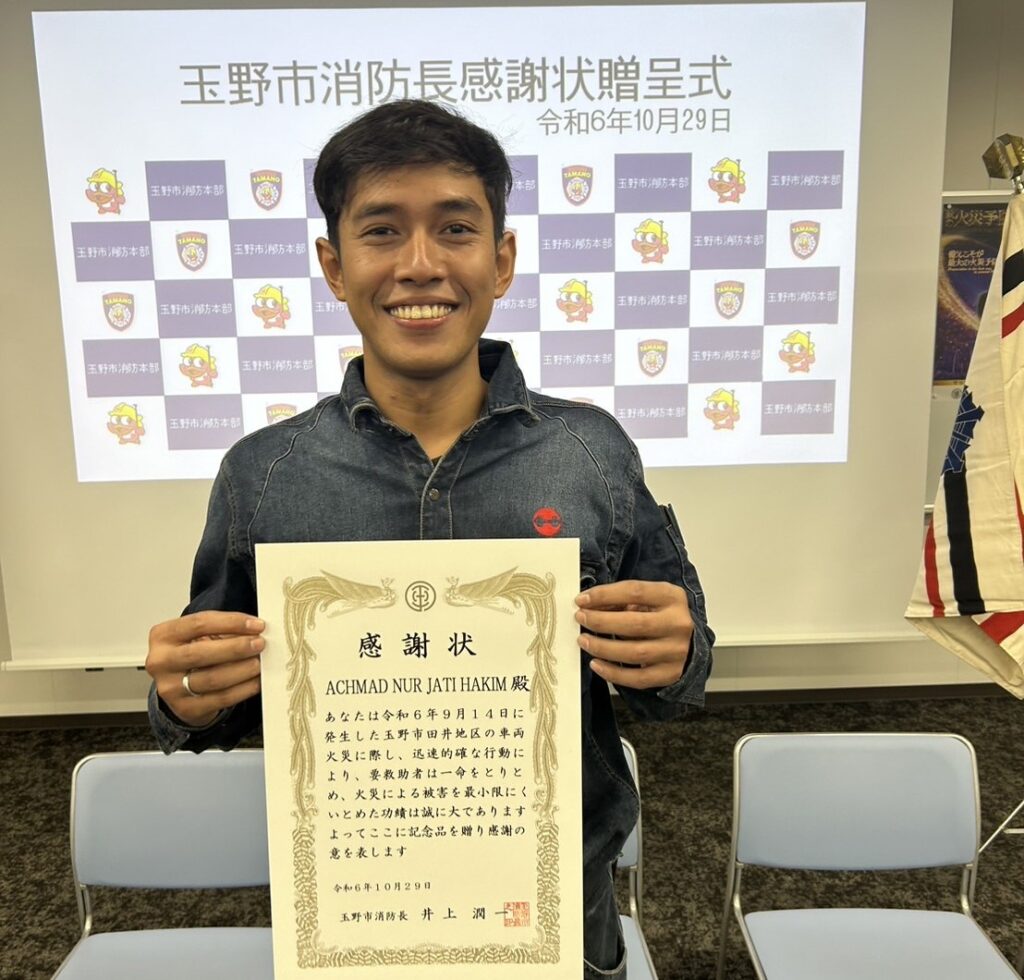 玉野市消防長感謝状贈呈式
令和6年10月29日
玉野市消防本部
TAMANO
玉野市消防本部
TAMANO
玉野市消防本部
玉野市消防本部
TAMANO
玉野市消防本部
玉野市消防本部
玉野市消防本部
TAMANO
TAMANO
玉野市消防本部
玉野市消防本部
TAMANO
玉野市消防本部
玉野市消防本部
玉野市消防本部
玉野市消防本部
TAMANO
玉野市消防本部
玉野市消防本部
TAMANO
玉野市消防本部
玉野市消防本部
火災予防
備えこそが
最大の火災予防
感謝状
ACHMAD NUR JATI HAKIM 殿
あなたは令和6年9月14日に
発生した玉野市田井地区の車両
火災に際し、迅速的確な行動に
より、要救助者は一命をとりと
め、火災による被害を最小限にく
いとめた功績は誠に大であります
よってここに記念品を贈り感謝の
意を表します
令和6年10月29日
玉野市消防長 井上 潤一